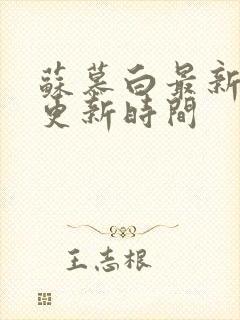 蘇慕白最新
更新時間
王志根